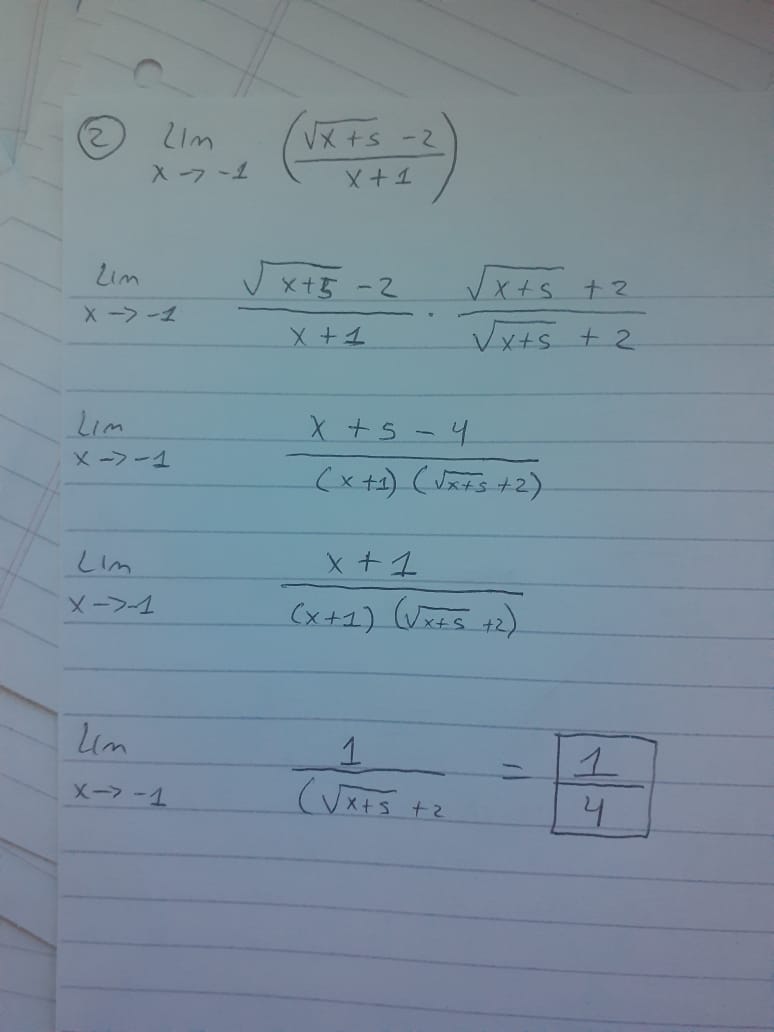 ② Lim x → -1 ( (√x+5 - 2) / (x + 1) )
Lim x → -1 (√x+5 - 2) / (x + 1) · (√x+5 + 2) / (√x+5 + 2)
Lim x → -1 (x + 5 - 4) / ((x+1) (√x+5 + 2))
Lim x → -1 (x + 1) / ((x+1) (√x+5 + 2))
Lim x → -1 1 / (√x+5 + 2 = 1/4